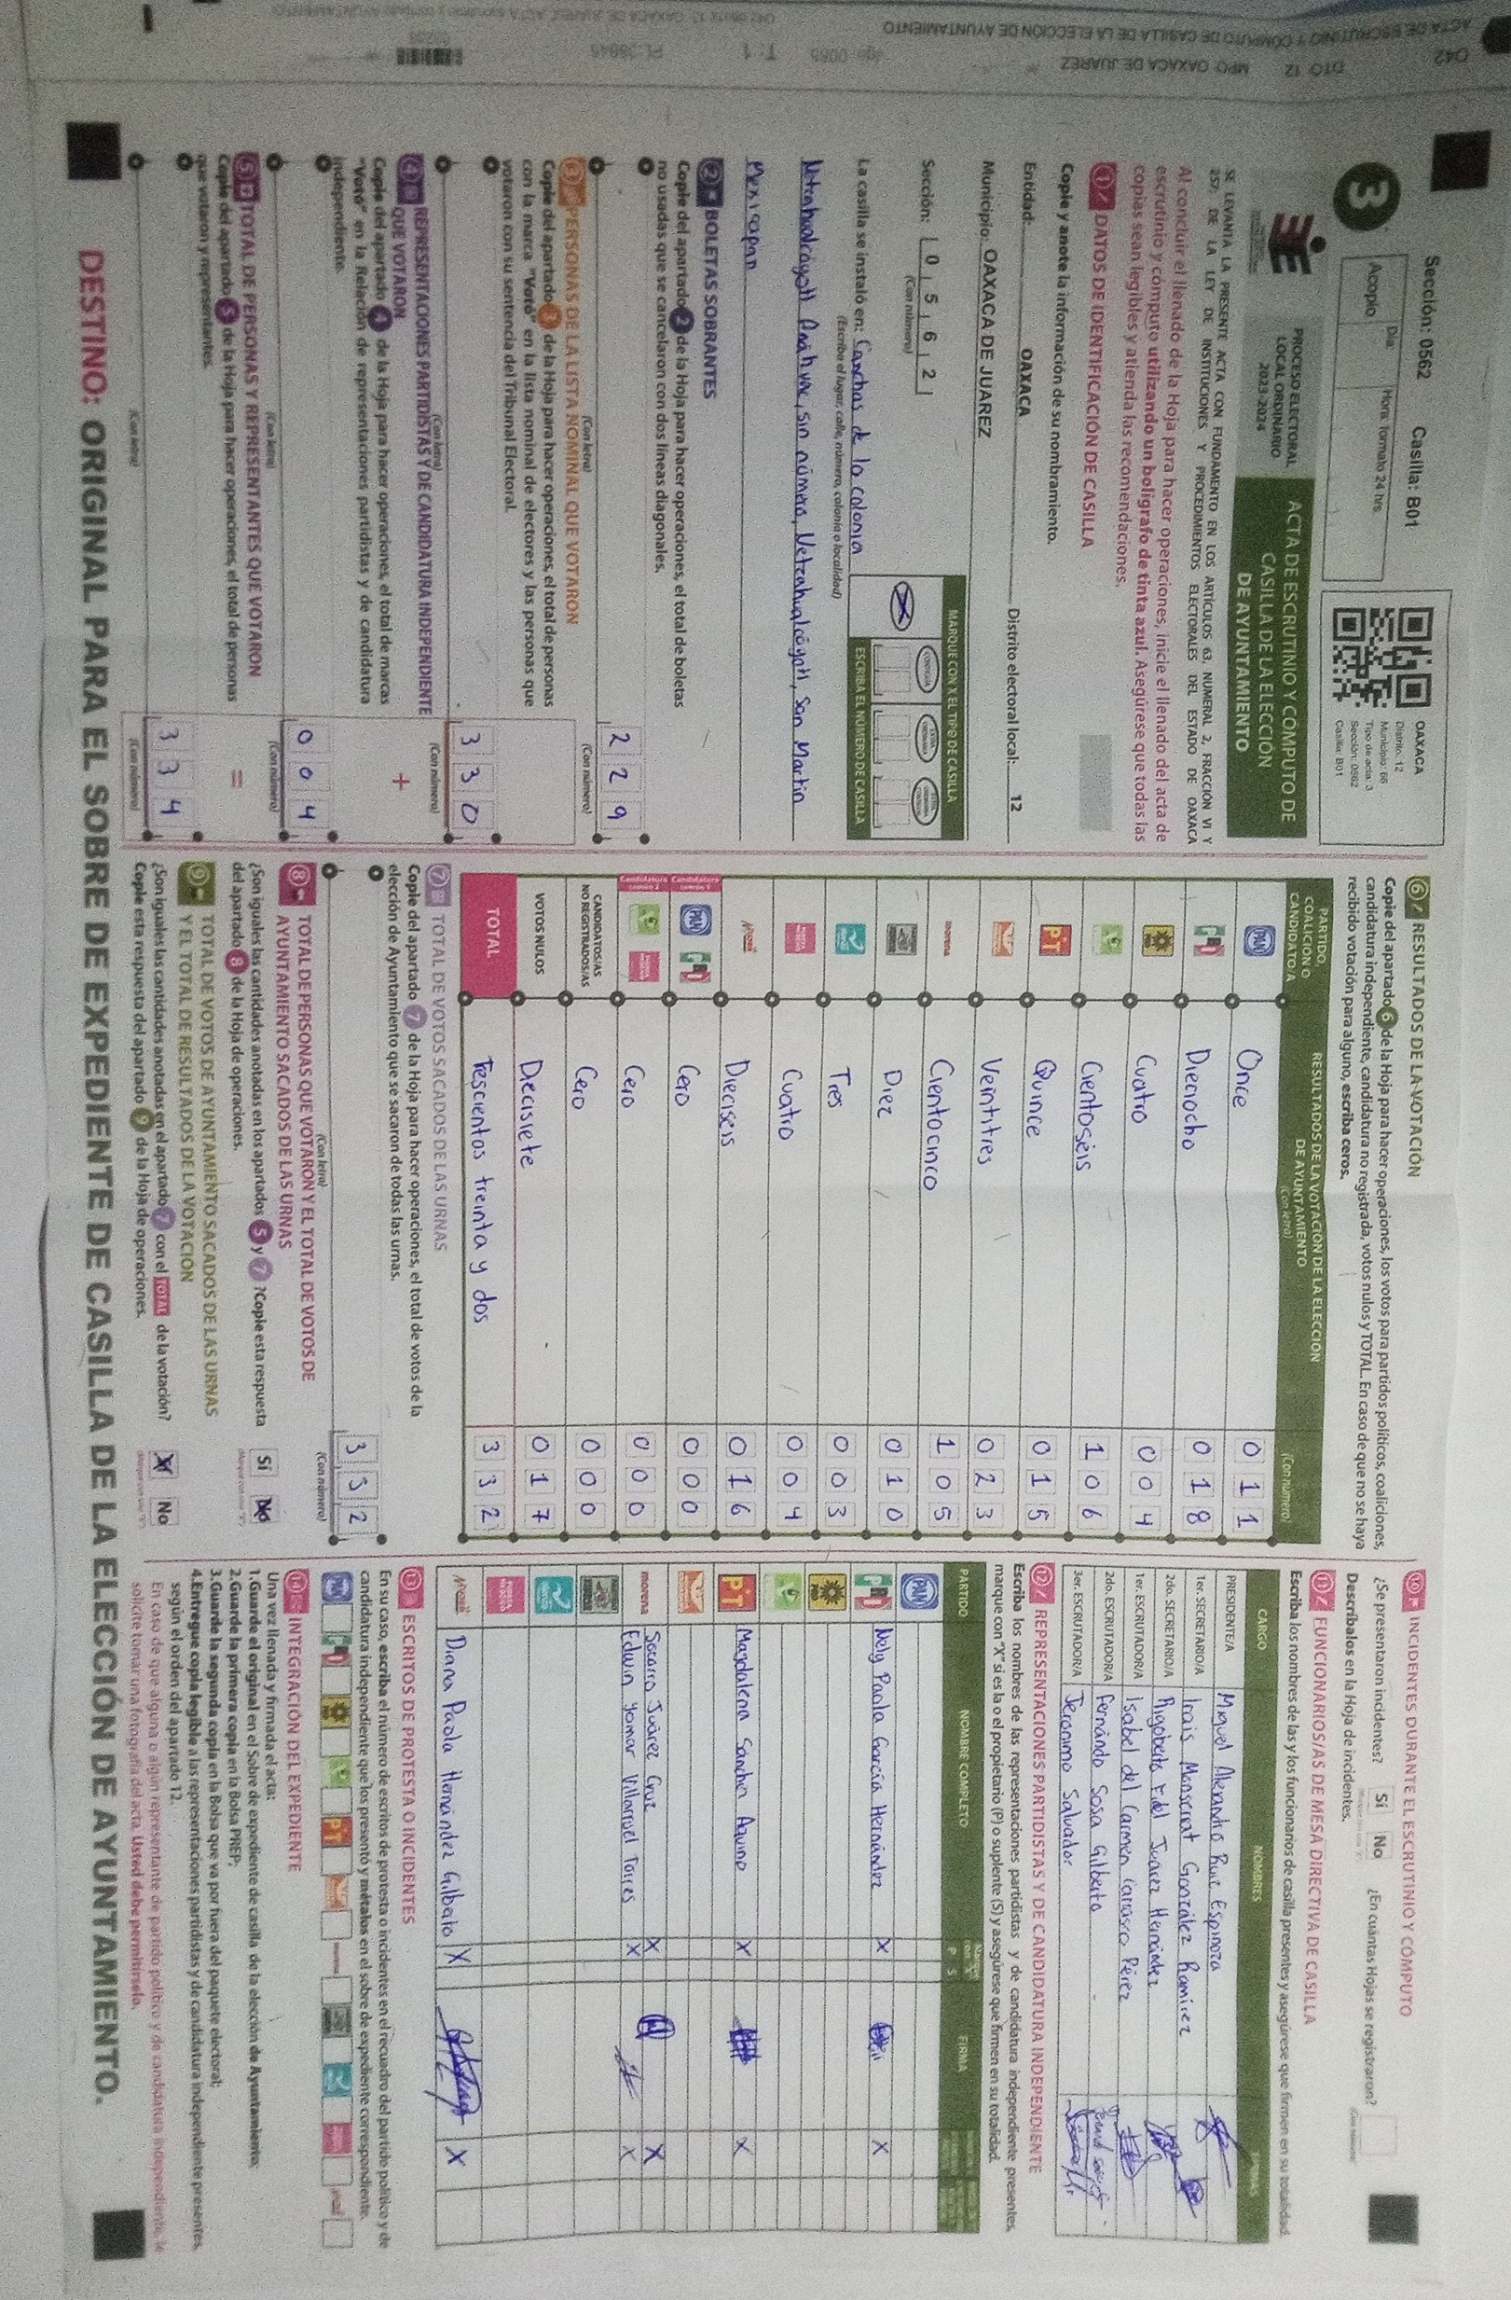 Sección: 0562 Casilla: B01
3
Acopio
Día:
Hora: formato 24 hrs.
OAXACA
Distrito: 12
Municipio: 66
Tipo de acta: 3
Sección: 0562
Casilla: B01
PROCESO ELECTORAL
LOCAL ORDINARIO
2023-2024
ACTA DE ESCRUTINIO Y CÓMPUTO DE
CASILLA DE LA ELECCIÓN
DE AYUNTAMIENTO
SE LEVANTA LA PRESENTE ACTA CON FUNDAMENTO EN LOS ARTÍCULOS 63, NUMERAL 2, FRACCIÓN VI Y
257, DE LA LEY DE INSTITUCIONES Y PROCEDIMIENTOS ELECTORALES DEL ESTADO DE OAXACA
Al concluir el llenado de la Hoja para hacer operaciones, inicie el llenado del acta de
escrutinio y cómputo utilizando un bolígrafo de tinta azul. Asegúrese que todas las
copias sean legibles y atienda las recomendaciones.
1 DATOS DE IDENTIFICACIÓN DE CASILLA
Copie y anote la información de su nombramiento.
Entidad: OAXACA Distrito electoral local: 12
Municipio: OAXACA DE JUAREZ
Sección: 0 5 6 2
(Con número)
MARQUE CON X EL TIPO DE CASILLA
X
ESCRIBA EL NÚMERO DE CASILLA
La casilla se instaló en: Canchas de la colonia
(Escriba el lugar, calle, número, colonia o localidad)
Netzahualcóyotl Anáhuac, sin número, Netzahualcóyotl, San Martin
Mexicapan
2 BOLETAS SOBRANTES
Copie del apartado 2 de la Hoja para hacer operaciones, el total de boletas
no usadas que se cancelaron con dos líneas diagonales.
2 2 9
(Con letra) (Con número)
3 PERSONAS DE LA LISTA NOMINAL QUE VOTARON
Copie del apartado 3 de la Hoja para hacer operaciones, el total de personas
con la marca "Votó" en la lista nominal de electores y las personas que
votaron con su sentencia del Tribunal Electoral.
3 3 0
(Con letra) (Con número)
4 REPRESENTACIONES PARTIDISTAS Y DE CANDIDATURA INDEPENDIENTE
QUE VOTARON
Copie del apartado 4 de la Hoja para hacer operaciones, el total de marcas
"Votó" en la Relación de representaciones partidistas y de candidatura
independiente.
+
0 0 4
(Con letra) (Con número)
5 TOTAL DE PERSONAS Y REPRESENTANTES QUE VOTARON
Copie del apartado 5 de la Hoja para hacer operaciones, el total de personas
que votaron y representantes.
=
3 3 4
(Con letra) (Con número)
6 RESULTADOS DE LA VOTACIÓN
Copie del apartado 6 de la Hoja para hacer operaciones, los votos para partidos políticos, coaliciones,
candidatura independiente, candidatura no registrada, votos nulos y TOTAL. En caso de que no se haya
recibido votación para alguno, escriba ceros.
PARTIDO, COALICIÓN O CANDIDATO/A
RESULTADOS DE LA VOTACIÓN DE LA ELECCIÓN
DE AYUNTAMIENTO
(Con letra) (Con número)
PAN Once 0 1 1
PRI Dieciocho 0 1 8
PRD Cuatro 0 0 4
Cientoséis 1 0 6
PT Quince 0 1 5
Veintitres 0 2 3
morena Cientocinco 1 0 5
Diez 0 1 0
Tres 0 0 3
Cuatro 0 0 4
Dieciseis 0 1 6
PAN PRI Cero 0 0 0
Cero 0 0 0
CANDIDATOS/AS
NO REGISTRADOS/AS Cero 0 0 0
VOTOS NULOS Diecisiete 0 1 7
TOTAL Trescientos treinta y dos 3 3 2
7 TOTAL DE VOTOS SACADOS DE LAS URNAS
Copie del apartado 7 de la Hoja para hacer operaciones, el total de votos de la
elección de Ayuntamiento que se sacaron de todas las urnas.
3 3 2
(Con letra) (Con número)
8 TOTAL DE PERSONAS QUE VOTARON Y EL TOTAL DE VOTOS DE
AYUNTAMIENTO SACADOS DE LAS URNAS
¿Son iguales las cantidades anotadas en los apartados 5 y 7 ? Copie esta respuesta
del apartado 8 de la Hoja de operaciones.
Sí No
9 TOTAL DE VOTOS DE AYUNTAMIENTO SACADOS DE LAS URNAS
Y EL TOTAL DE RESULTADOS DE LA VOTACIÓN
¿Son iguales las cantidades anotadas en el apartado 7 con el TOTAL de la votación?
Copie esta respuesta del apartado 9 de la Hoja de operaciones.
X No
10 INCIDENTES DURANTE EL ESCRUTINIO Y CÓMPUTO
¿Se presentaron incidentes? Sí No ¿En cuántas Hojas se registraron?
Descríbalos en la Hoja de incidentes.
11 FUNCIONARIOS/AS DE MESA DIRECTIVA DE CASILLA
Escriba los nombres de las y los funcionarios de casilla presentes y asegúrese que firmen en su totalidad.
CARGO NOMBRES FIRMAS
PRESIDENTE/A Miguel Alexandro Ruiz Espinoza
1er. SECRETARIO/A Irais Monserrat González Ramírez
2do. SECRETARIO/A Rigoberto Fidel Juarez Hernández
1er. ESCRUTADOR/A Isabel del Carmen Carrasco Pérez
2do. ESCRUTADOR/A Fernándo Sosa Gilberto
3er. ESCRUTADOR/A Jeronimo Salvador
12 REPRESENTACIONES PARTIDISTAS Y DE CANDIDATURA INDEPENDIENTE
Escriba los nombres de las representaciones partidistas y de candidatura independiente presentes,
marque con "X" si es la o el propietario (P) o suplente (S) y asegúrese que firmen en su totalidad.
PARTIDO NOMBRE COMPLETO P S FIRMA
PAN
PRI Nely Paola García Hernández X X
PRD
PT Magdalena Sanchez Aquino X X
morena Socorro Juárez Cruz X X
Edwin Yomar Villarroel Torres X X
Diana Paola Hernández Gilbato X X
13 ESCRITOS DE PROTESTA O INCIDENTES
En su caso, escriba el número de escritos de protesta o incidentes en el recuadro del partido político y de
candidatura independiente que los presentó y métalos en el sobre de expediente correspondiente.
14 INTEGRACIÓN DEL EXPEDIENTE
Una vez llenada y firmada el acta:
1.Guarde el original en el Sobre de expediente de casilla de la elección de Ayuntamiento;
2.Guarde la primera copia en la Bolsa PREP;
3.Guarde la segunda copia en la Bolsa que va por fuera del paquete electoral;
4.Entregue copia legible a las representaciones partidistas y de candidatura independiente presentes,
según el orden del apartado 12.
En caso de que alguna o algún representante de partido político y de candidatura independiente, le
solicite tomar una fotografía del acta, Usted debe permitírselo.
DESTINO: ORIGINAL PARA EL SOBRE DE EXPEDIENTE DE CASILLA DE LA ELECCIÓN DE AYUNTAMIENTO.